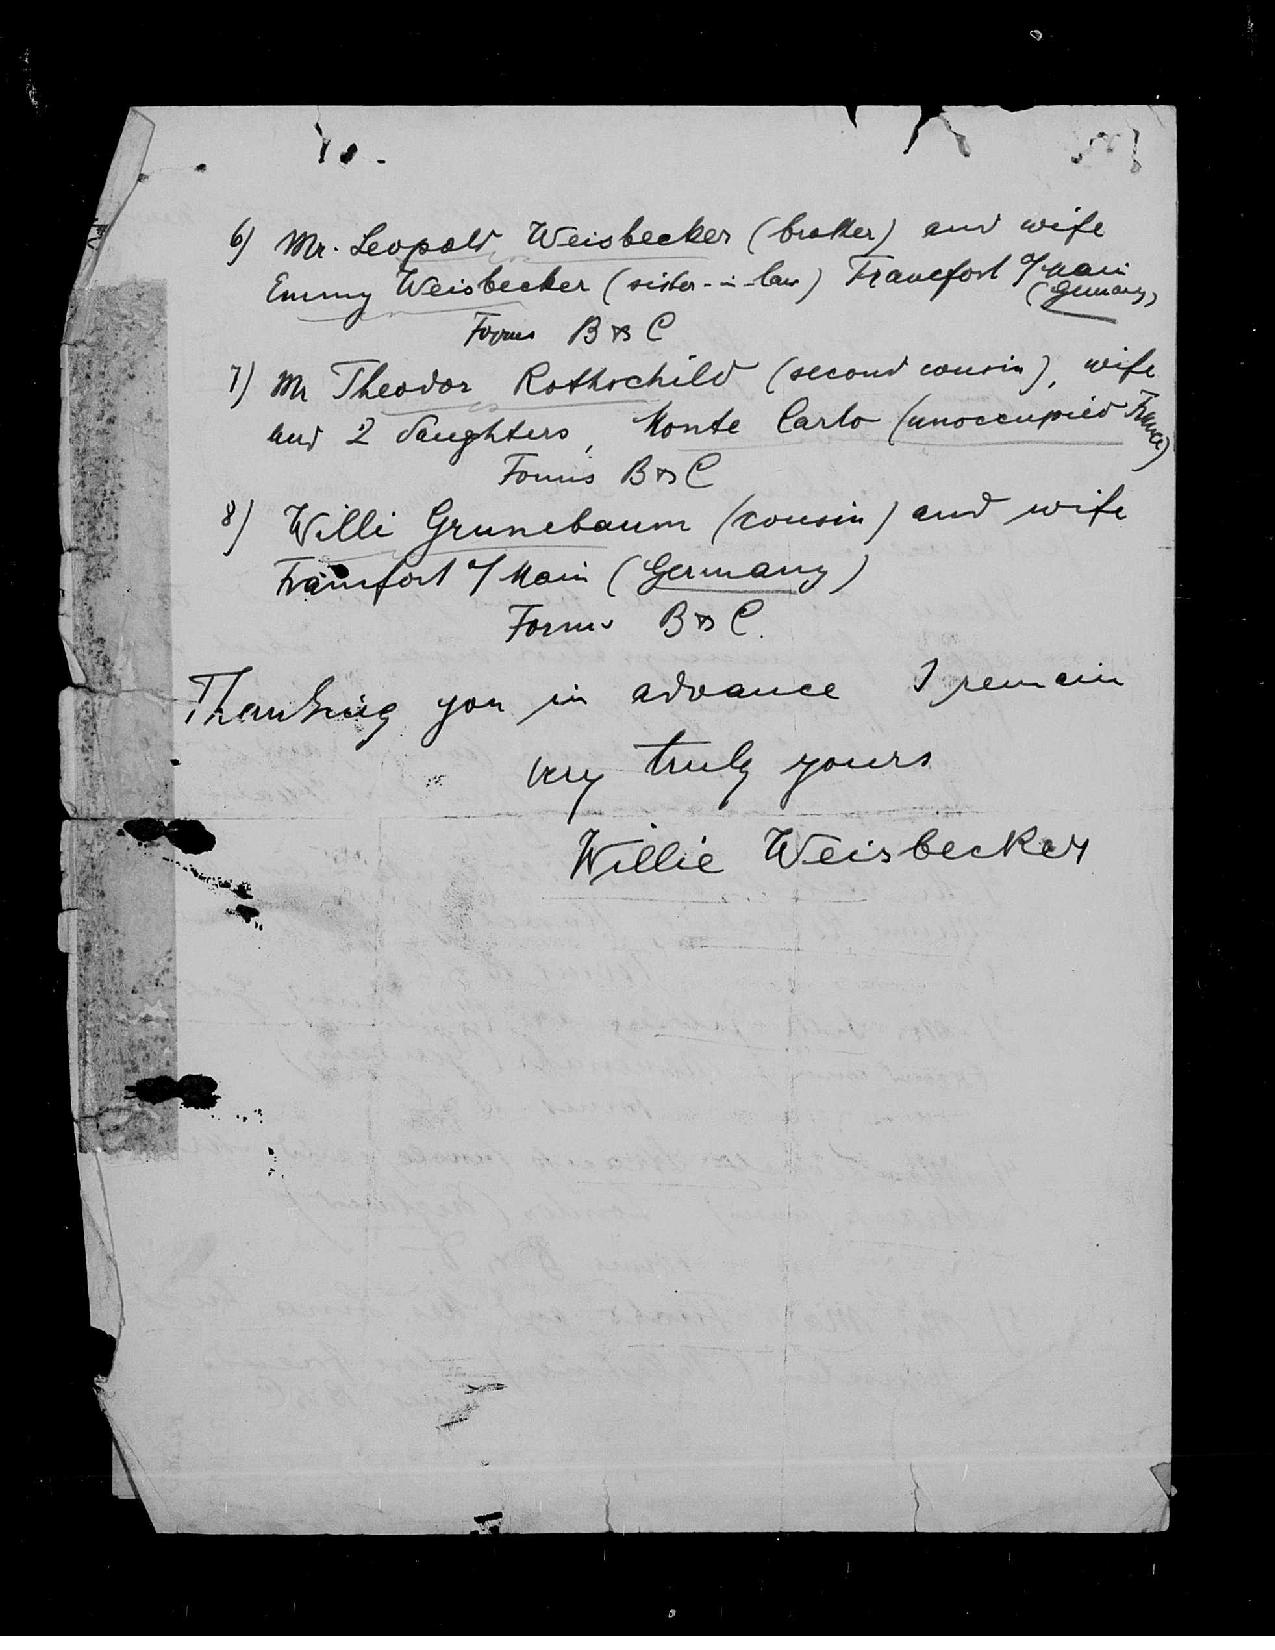 6) Mr. Leopold Weisbecker (brother) and wife
Emmy Weisbecker (sister-in-law) Francfort o/Main
(Germany)
Forms B & C
7) Mr Theodor Rothschild (second cousin), wife
and 2 daughters, Monte Carlo (unoccupied France)
Forms B & C
8) Willi Grunebaum (cousin) and wife
Francfort o/Main (Germany)
Forms B & C.
Thanking you in advance I remain
very truly yours
Willie Weisbecker